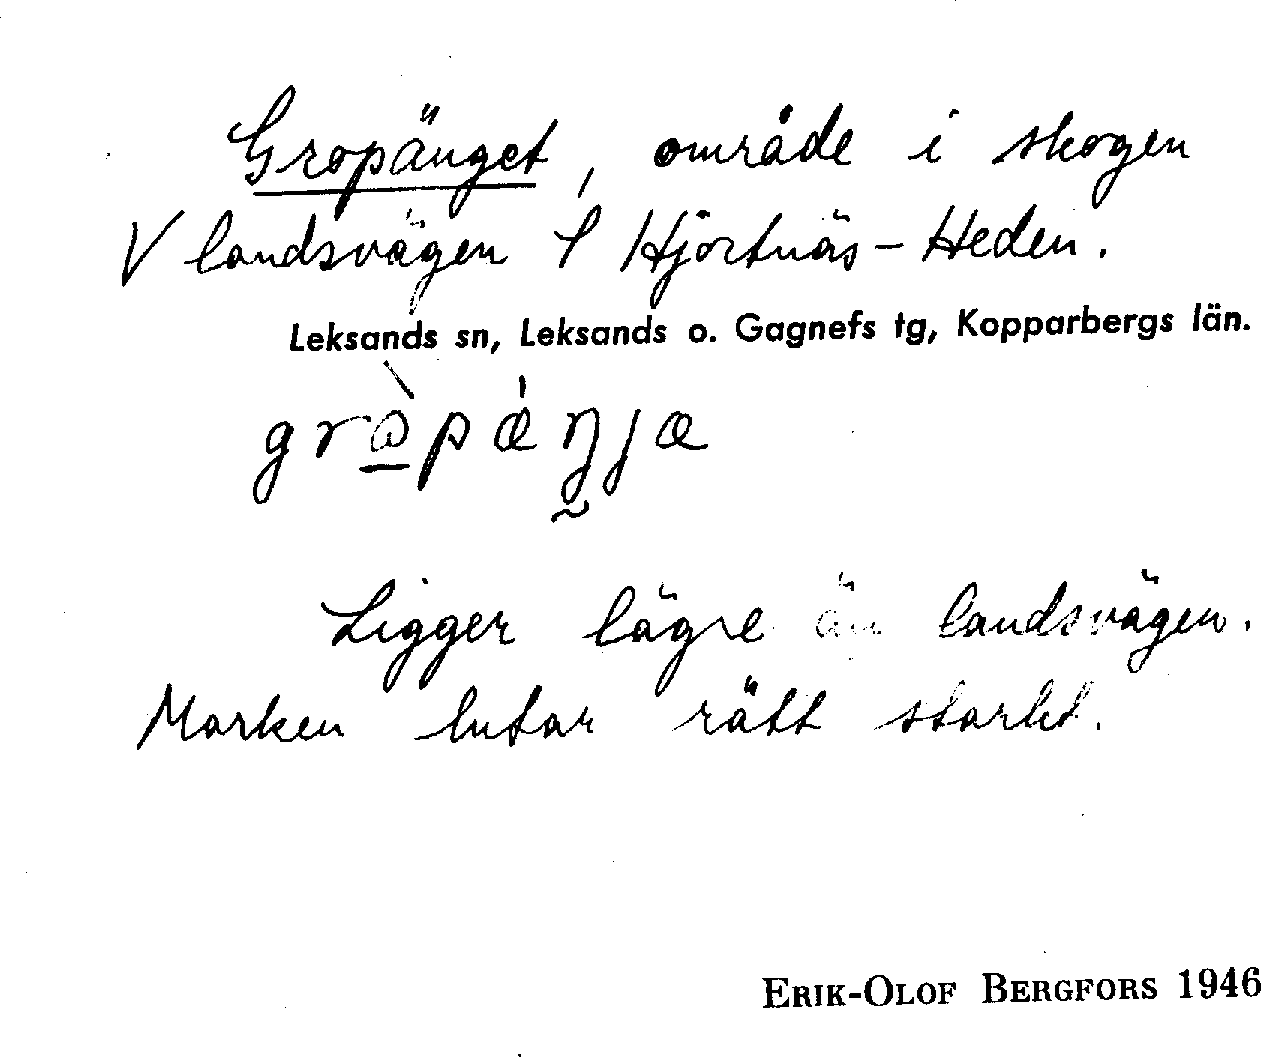 Gropänget, område i skogen
V landsvägen S Hjortnäs-Heden.
Leksands sn, Leksands o. Gagnefs tg, Kopparbergs län.
Ligger lägre än landsvägen.
Marken lutar rätt starkt.
ERIK-OLOF BERGFORS 1946